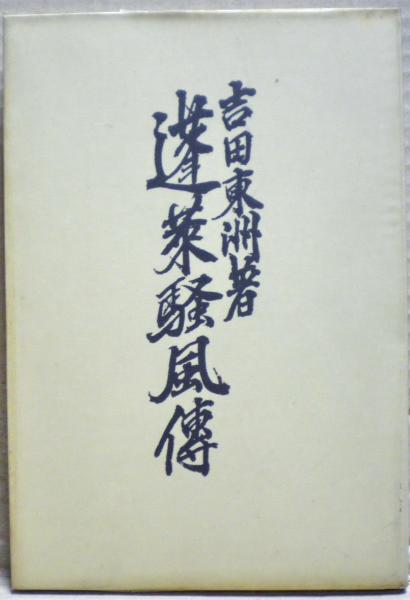 吉田東洲著
蓬萊騒風傳